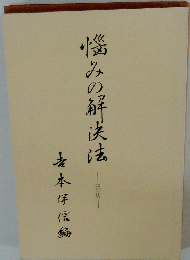 悩みの解決法
吉本伊信編